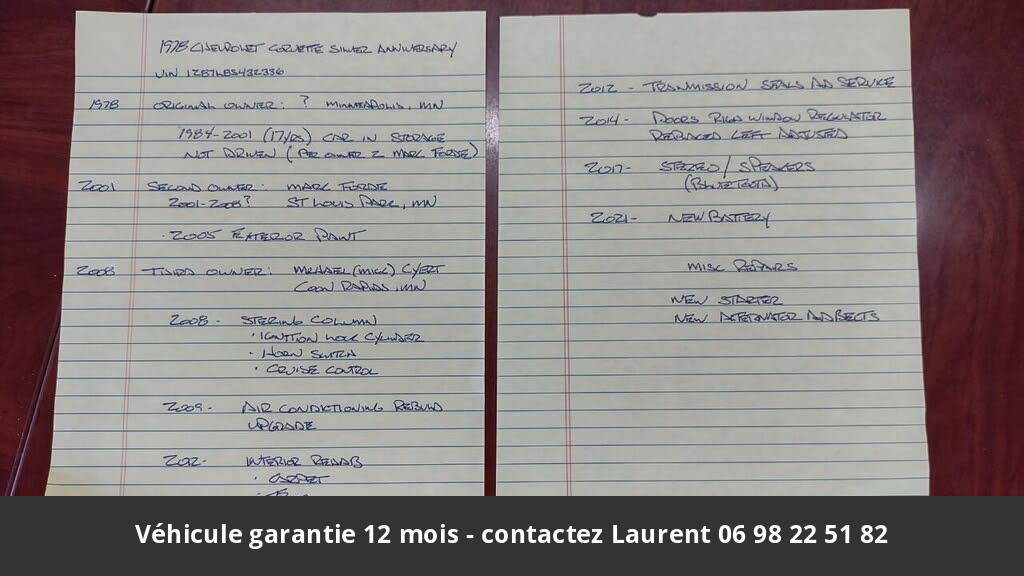 1978 CHEVROLET CORVETTE SILVER ANNIVERSARY
VIN 1Z87L8S432336
1978 ORIGINAL OWNER: ? MINNEAPOLIS, MN
1984-2001 (17 YRS) CAR IN STORAGE
NOT DRIVEN (PER OWNER 2 MARK FORDE)
2001 SECOND OWNER: MARK FORDE
2001-2008? ST LOUIS PARK, MN
·2005 EXTERIOR PAINT
2008 THIRD OWNER: MICHAEL (MICK) CYERT
COON RAPIDS, MN
2008- STERING COLUMN
· IGNITION LOCK CYLINDER
· HORN SWITCH
· CRUISE CONTROL
2009- AIR CONDICTIONING REBUILD
UPGRADE
2012- INTERIOR REHAB
· CARPET
2012 - TRANMISSION SEALS AND SERVICE
2014- DOORS RIGHT WINDOW REGULATER
REPLACED LEFT ADJUSTED
2017- STEREO / SPEAKERS
(BLUETOOTH)
2021- NEW BATTERY
MISC REPAIRS
NEW STARTER
NEW ALTERNATER AND BELTS
Véhicule garantie 12 mois - contactez Laurent 06 98 22 51 82